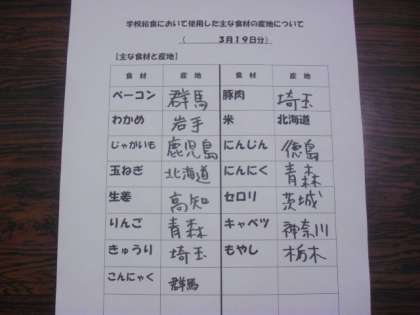 学校給食において使用した主な食材の産地について
( 3月19日分)
【主な食材と産地】
食材 産地 食材 産地
ベーコン 群馬 豚肉 埼玉
わかめ 岩手 米 北海道
じゃがいも 鹿児島 にんじん 徳島
玉ねぎ 北海道 にんにく 青森
生姜 高知 セロリ 茨城
りんご 青森 キャベツ 神奈川
きゅうり 埼玉 もやし 栃木
こんにゃく 群馬